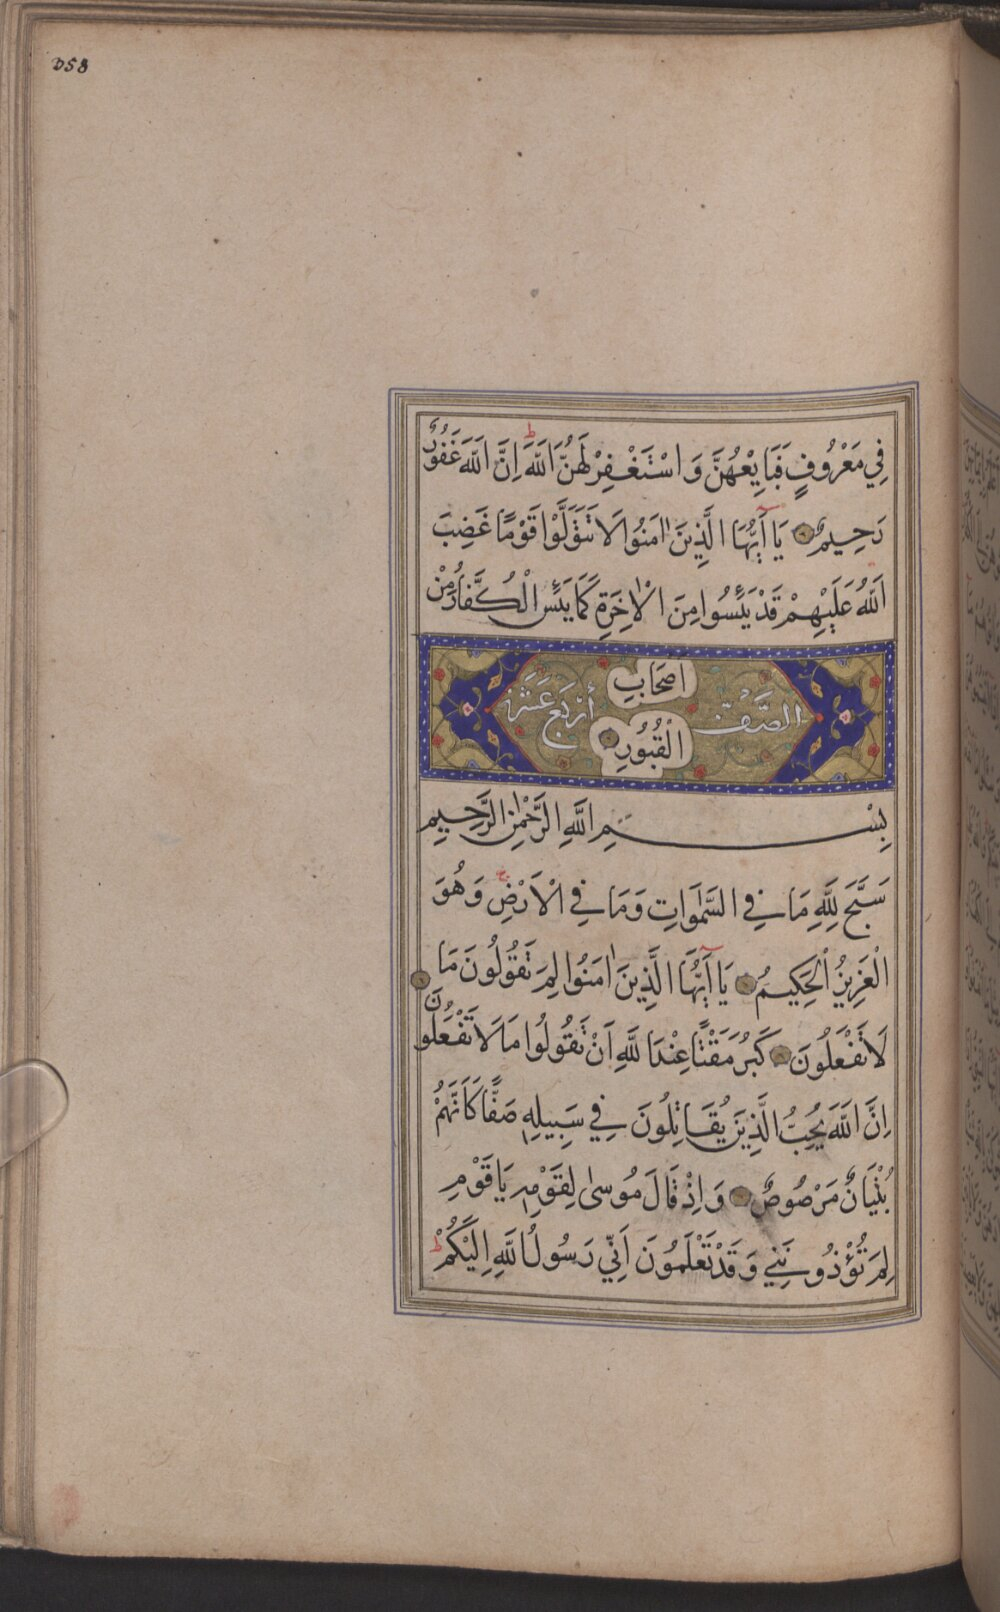 358
فِي مَعْرُوفٍ فَبَايِعْهُنَّ وَاسْتَغْفِرْ لَهُنَّ اللَّهَ ط اِنَّ اللَّهَ غَفُورٌ
رَحِيمٌ يَا اَيُّهَا الَّذِينَ اٰمَنُوا لَا تَتَوَلَّوْا قَوْمًا غَضِبَ
اللَّهُ عَلَيْهِمْ قَدْ يَئِسُوا مِنَ الْاٰخِرَةِ كَمَا يَئِسَ الْكُفَّارُ مِنْ
اَصْحَابِ
الصَّفّ أَرْبَعَ عَشَرَة
الْقُبُورِ
بِسْمِ اللَّهِ الرَّحْمٰنِ الرَّحِيمِ
سَبَّحَ لِلَّهِ مَا فِي السَّمٰوَاتِ وَمَا فِي الْاَرْضِ ج وَهُوَ
الْعَزِيزُ الْحَكِيمُ يَا اَيُّهَا الَّذِينَ اٰمَنُوا لِمَ تَقُولُونَ مَا
لَا تَفْعَلُونَ كَبُرَ مَقْتًا عِنْدَ اللَّهِ اَنْ تَقُولُوا مَا لَا تَفْعَلُونَ
اِنَّ اللَّهَ يُحِبُّ الَّذِينَ يُقَاتِلُونَ فِي سَبِيلِهِ صَفًّا كَاَنَّهُمْ
بُنْيَانٌ مَرْصُوصٌ وَاِذْ قَالَ مُوسٰى لِقَوْمِهِ يَا قَوْمِ
لِمَ تُؤْذُونَنِي وَقَدْ تَعْلَمُونَ اَنِّي رَسُولُ اللَّهِ اِلَيْكُمْ ط